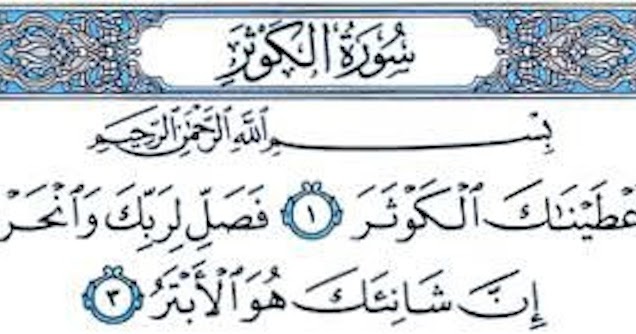 سُورَةُ الكَوْثَرِ
بِسْمِ ٱللَّهِ ٱلرَّحْمَٰنِ ٱلرَّحِيمِ
عْطَيْنَٰكَ ٱلْكَوْثَرَ ١ فَصَلِّ لِرَبِّكَ وَٱنْحَرْ
إِنَّ شَانِئَكَ هُوَ ٱلْأَبْتَرُ ٣